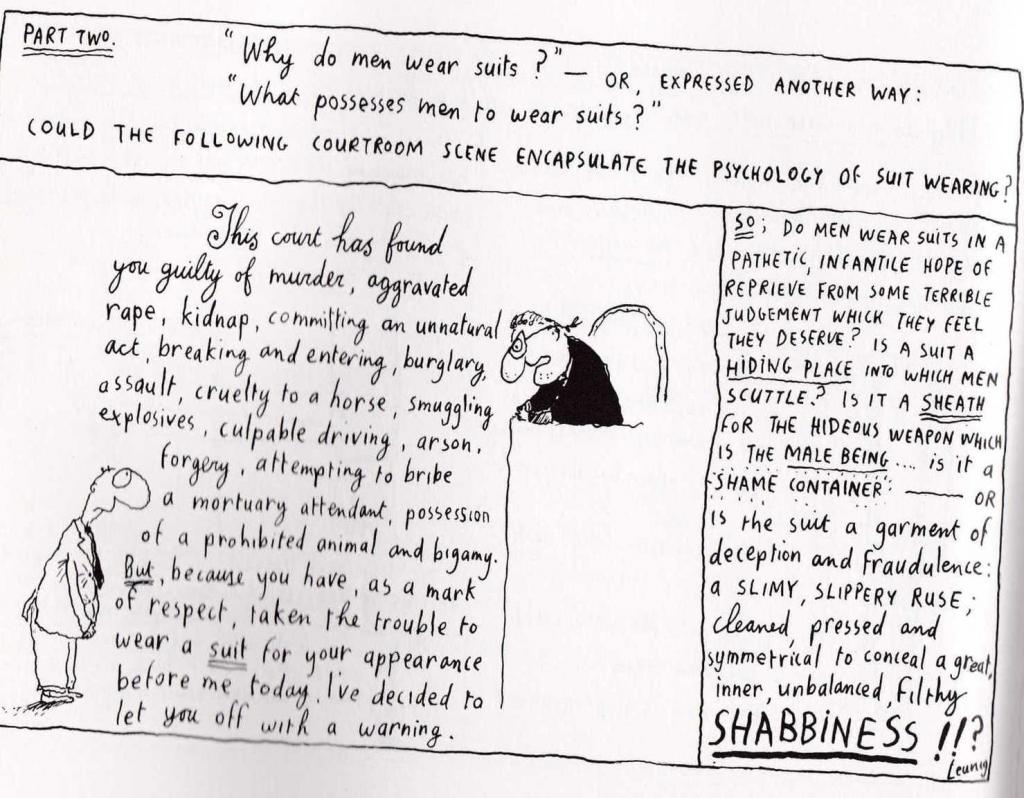 PART TWO.
"Why do men wear suits?" — OR, EXPRESSED ANOTHER WAY:
"What possesses men to wear suits?"
COULD THE FOLLOWING COURTROOM SCENE ENCAPSULATE THE PSYCHOLOGY OF SUIT WEARING?
This court has found
you guilty of murder, aggravated
rape, kidnap, committing an unnatural
act, breaking and entering, burglary,
assault, cruelty to a horse, smuggling
explosives, culpable driving, arson,
forgery, attempting to bribe
a mortuary attendant, possession
of a prohibited animal and bigamy.
But, because you have, as a mark
of respect, taken the trouble to
wear a suit for your appearance
before me today. I've decided to
let you off with a warning.
SO; DO MEN WEAR SUITS IN A
PATHETIC, INFANTILE HOPE OF
REPRIEVE FROM SOME TERRIBLE
JUDGEMENT WHICH THEY FEEL
THEY DESERVE? IS A SUIT A
HIDING PLACE INTO WHICH MEN
SCUTTLE? IS IT A SHEATH
FOR THE HIDEOUS WEAPON WHICH
IS THE MALE BEING... is it a
SHAME CONTAINER: — OR
is the suit a garment of
deception and fraudulence:
a SLIMY, SLIPPERY RUSE;
cleaned, pressed and
symmetrical to conceal a great,
inner, unbalanced, filthy
SHABBINESS!!?
Leunig